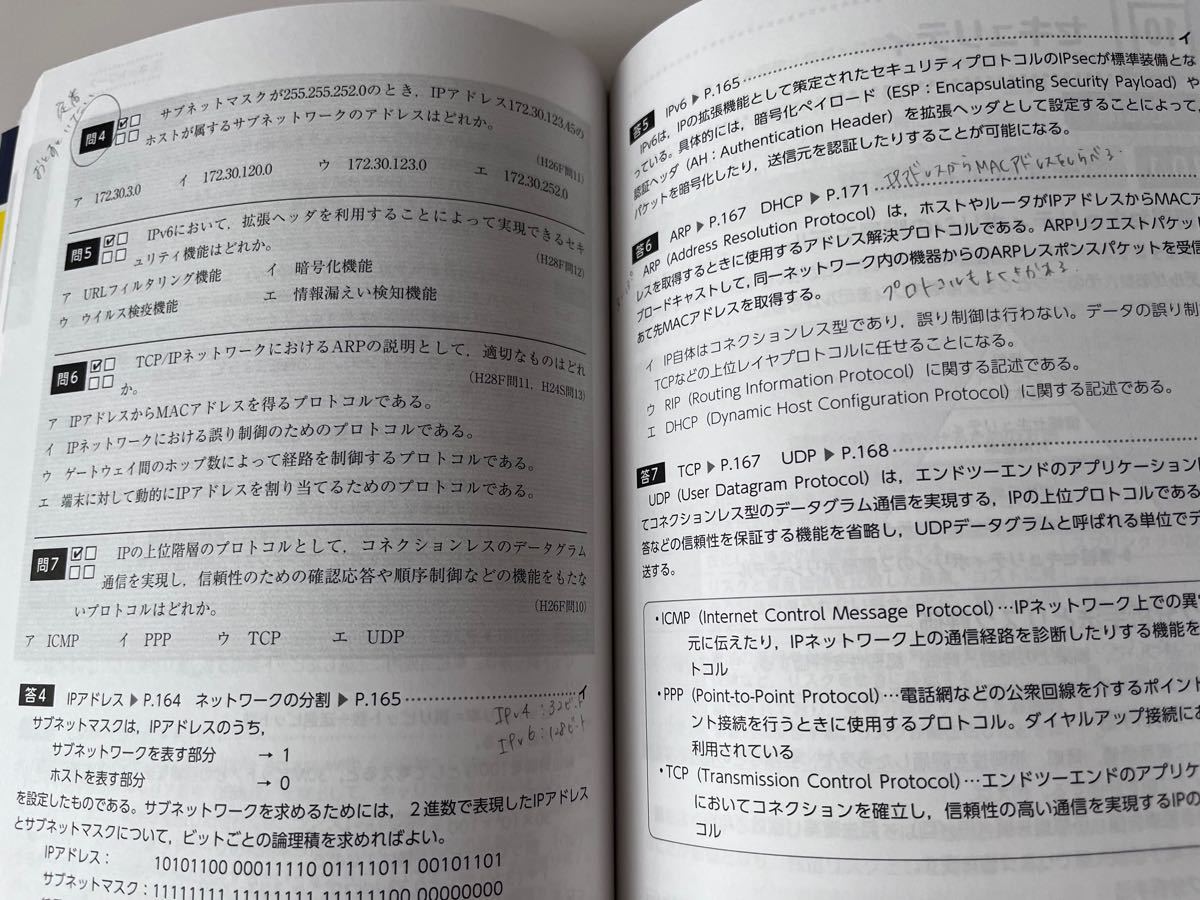 問4 サブネットマスクが255.255.252.0のとき，IPアドレス172.30.123.45の
ホストが属するサブネットワークのアドレスはどれか。
(H26F問11)
ア 172.30.3.0 イ 172.30.120.0 ウ 172.30.123.0 エ 172.30.252.0
問5 IPv6において，拡張ヘッダを利用することによって実現できるセキ
ュリティ機能はどれか。
(H28F問12)
ア URLフィルタリング機能 イ 暗号化機能
ウ ウイルス検疫機能 エ 情報漏えい検知機能
問6 TCP/IPネットワークにおけるARPの説明として，適切なものはどれ
か。
(H28F問11，H24S問13)
ア IPアドレスからMACアドレスを得るプロトコルである。
イ IPネットワークにおける誤り制御のためのプロトコルである。
ウ ゲートウェイ間のホップ数によって経路を制御するプロトコルである。
エ 端末に対して動的にIPアドレスを割り当てるためのプロトコルである。
問7 IPの上位階層のプロトコルとして，コネクションレスのデータグラム
通信を実現し，信頼性のための確認応答や順序制御などの機能をもたな
いプロトコルはどれか。 (H26F問10)
ア ICMP イ PPP ウ TCP エ UDP
答4 IPアドレス▶P.164 ネットワークの分割▶P.165 イ
IPv4：32ビット
IPv6：128ビット
サブネットマスクは，IPアドレスのうち，
サブネットワークを表す部分 → 1
ホストを表す部分 → 0
を設定したものである。サブネットワークを求めるためには，2進数で表現したIPアドレス
とサブネットマスクについて，ビットごとの論理積を求めればよい。
IPアドレス： 10101100 00011110 01111011 00101101
サブネットマスク：11111111 11111111 11111100 00000000
答5 IPv6▶P.165 イ
IPv6は，IPの拡張機能として策定されたセキュリティプロトコルのIPsecが標準装備とな
っている。具体的には，暗号化ペイロード（ESP：Encapsulating Security Payload）や
認証ヘッダ（AH：Authentication Header）を拡張ヘッダとして設定することによって
パケットを暗号化したり，送信元を認証したりすることが可能になる。
IPアドレスからMACアドレスをしらべる．
答6 ARP▶P.167 DHCP▶P.171
ARP（Address Resolution Protocol）は，ホストやルータがIPアドレスからMACア
レスを取得するときに使用するアドレス解決プロトコルである。ARPリクエストパケット
ブロードキャストして，同一ネットワーク内の機器からのARPレスポンスパケットを受信
あて先MACアドレスを取得する。
イ IP自体はコネクションレス型であり，誤り制御は行わない。データの誤り制
TCPなどの上位レイヤプロトコルに任せることになる。
ウ RIP（Routing Information Protocol）に関する記述である。
エ DHCP（Dynamic Host Configuration Protocol）に関する記述である。
答7 TCP▶P.167 UDP▶P.168
UDP（User Datagram Protocol）は，エンドツーエンドのアプリケーション
てコネクションレス型のデータグラム通信を実現する，IPの上位プロトコルである
答などの信頼性を保証する機能を省略し，UDPデータグラムと呼ばれる単位でデ
送する。
・ICMP（Internet Control Message Protocol）…IPネットワーク上での異
元に伝えたり，IPネットワーク上の通信経路を診断したりする機能を
トコル
・PPP（Point-to-Point Protocol）…電話網などの公衆回線を介するポイント
ント接続を行うときに使用するプロトコル。ダイヤルアップ接続にお
利用されている
・TCP（Transmission Control Protocol）…エンドツーエンドのアプリケ
においてコネクションを確立し，信頼性の高い通信を実現するIPの
コル